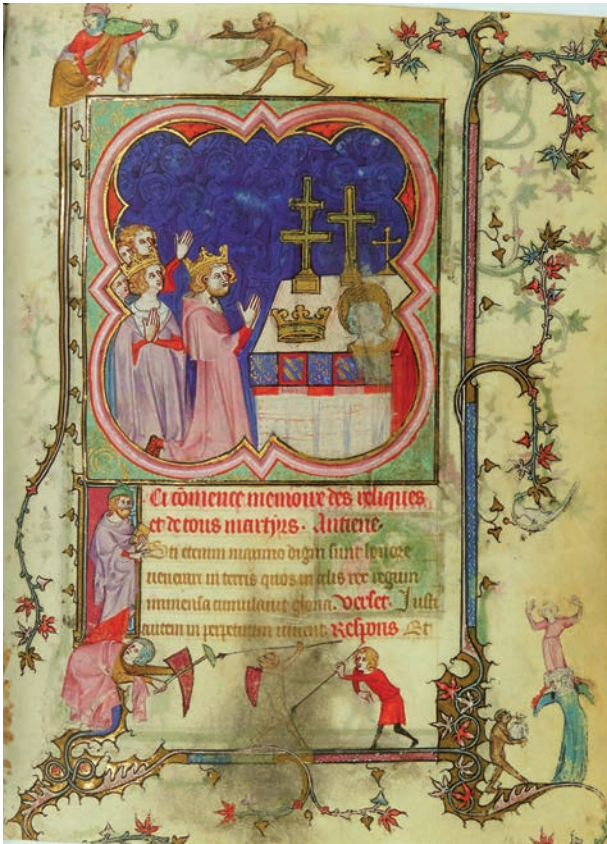 Ci cōmence memoire des reliques
et de tous martyrs. Antiene.
Sti etenim maximo digni sunt honore
uenerari in terris quos in celis rex regum
immensa cumulauit gloria. Verset. Justi
autem in perpetuum uiuent. Respons Et